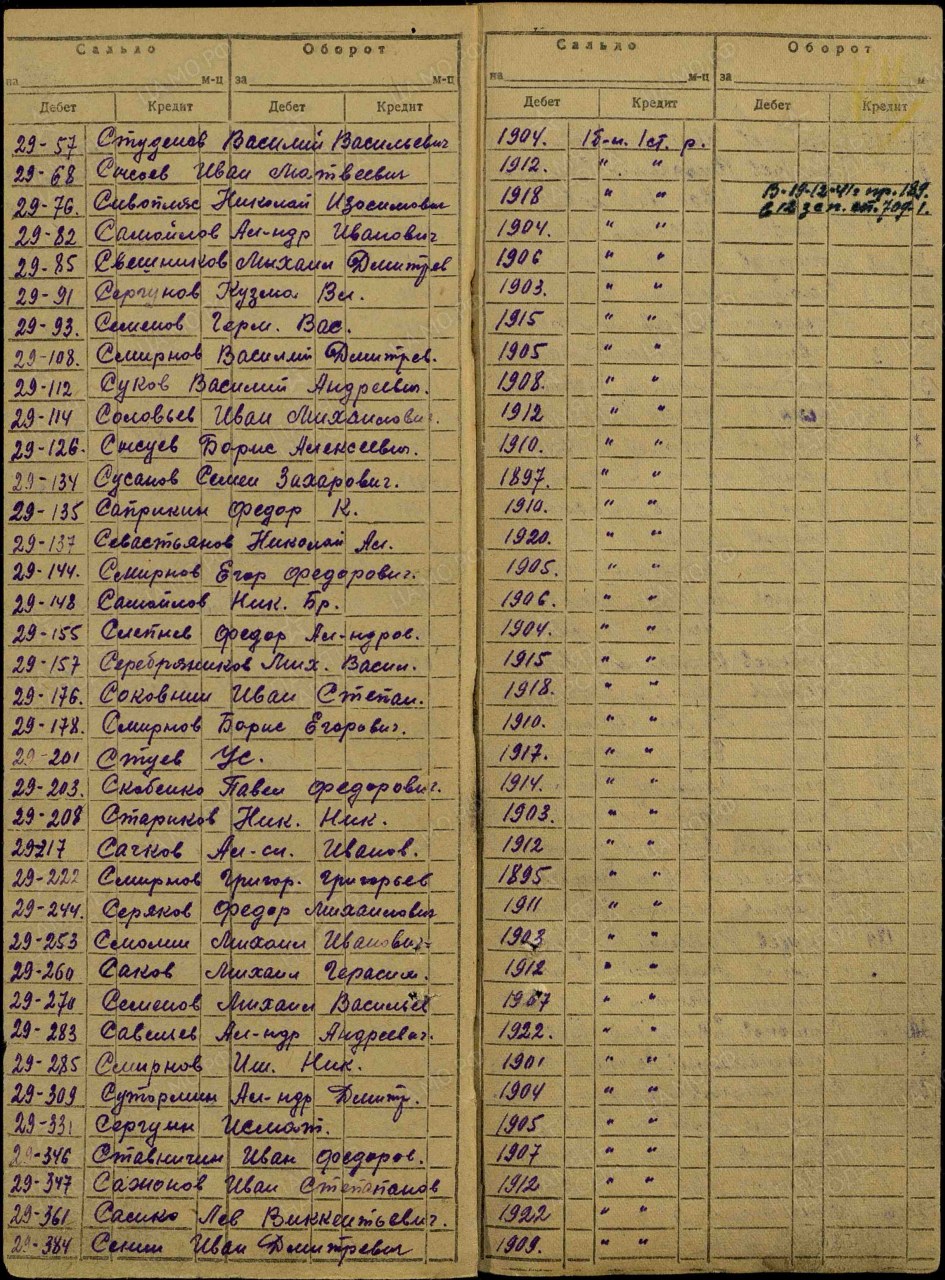 Сальдо Оборот Сальдо Оборот
на м-ц за м-ц на м-ц за м
Дебет Кредит Дебет Кредит Дебет Кредит Дебет Кредит
29-57 Студенов Василий Васильевич 1904. 1б-н. 1ст. р.
29-68 Сысоев Иван Матвеевич 1912. " "
29-76. Сивопляс Николай Изосимович 1918 " " В-19-12-41г пр. 189.
в 12 зсп. ст. 709-1.
29-82 Самойлов Ал-ндр Иванович 1904. " "
29-85 Свешников Михаил Дмитрев 1906 " "
29-91 Сергунов Кузма Вл. 1903. " "
29-93. Семенов Герм. Вас. 1915 " "
29-108. Смирнов Василий Дмитрев. 1905 " "
29-112 Суков Василий Андреевич. 1908. " "
29-114 Соловьев Иван Михайлович. 1912 " "
29-126. Сысуев Борис Алексеевич. 1910. " "
29-134 Сусанов Семен Захарович. 1897. " "
29-135 Саприкин Федор К. 1910. " "
29-137 Севастьянов Николай Ал. 1920. " "
29-144. Смирнов Егор Федорович. 1905. " "
29-148 Самойлов Ник. Гр. 1906. " "
29-155 Слепнев Федор Ал-ндров. 1904. " "
29-157 Серебряников Мих. Васил. 1915 " "
29-176. Соковнин Иван Степан. 1918. " "
29-178. Смирнов Борис Егорович. 1910. " "
29-201 Стуев Ус. 1917. " "
29-203. Скобенко Павел Федорович. 1914. " "
29-208 Стариков Ник. Ник. 1903. " "
29-217 Сачков Ал-сл. Иванов. 1912 " "
29-222 Смирнов Григор. Григорьев 1895 " "
29-244. Серяков Федор Михайлович 1911 " "
29-253 Смолин Михаил Иванович- 1903 " "
29-260 Саков Михаил Герасим. 1912 " "
29-270 Семенов Михаил Васильев 1907 " "
29-283 Савельев Ал-ндр Андреевич. 1922. " "
29-285 Смирнов Ил. Ник. 1901 " "
29-309 Сутормин Ал-ндр Дмитр. 1904 " "
29-331 Сергуин Исмат. 1905 " "
29-346 Ставничин Иван Федоров. 1907 " "
29-347 Сажонов Иван Степапанов 1912 " "
29-361 Сасико Лев Виккентьевич. 1922 " "
29-384 Сенин Иван Дмитревич 1909. " "